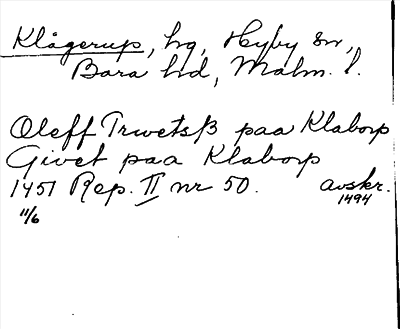 Klågerup, hg, Hyby sn,
Bara hd, Malm. l.
Oleff Trwetsß paa Klaborp
Givet paa Klaborp
1451 Rep. II nr 50. avskr.
1494
11/6